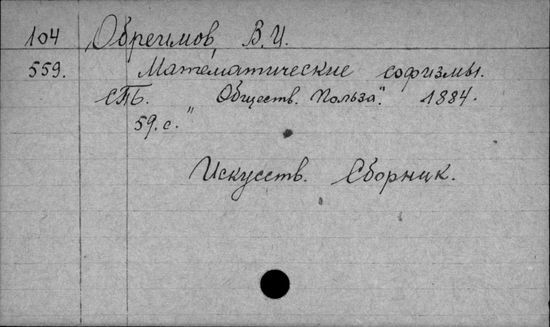 104 Обреимов, В.И.
559. Математические софизмы.
СПБ. "Обществ. Польза". 1884.
59. с.
Искусств. Сборник.